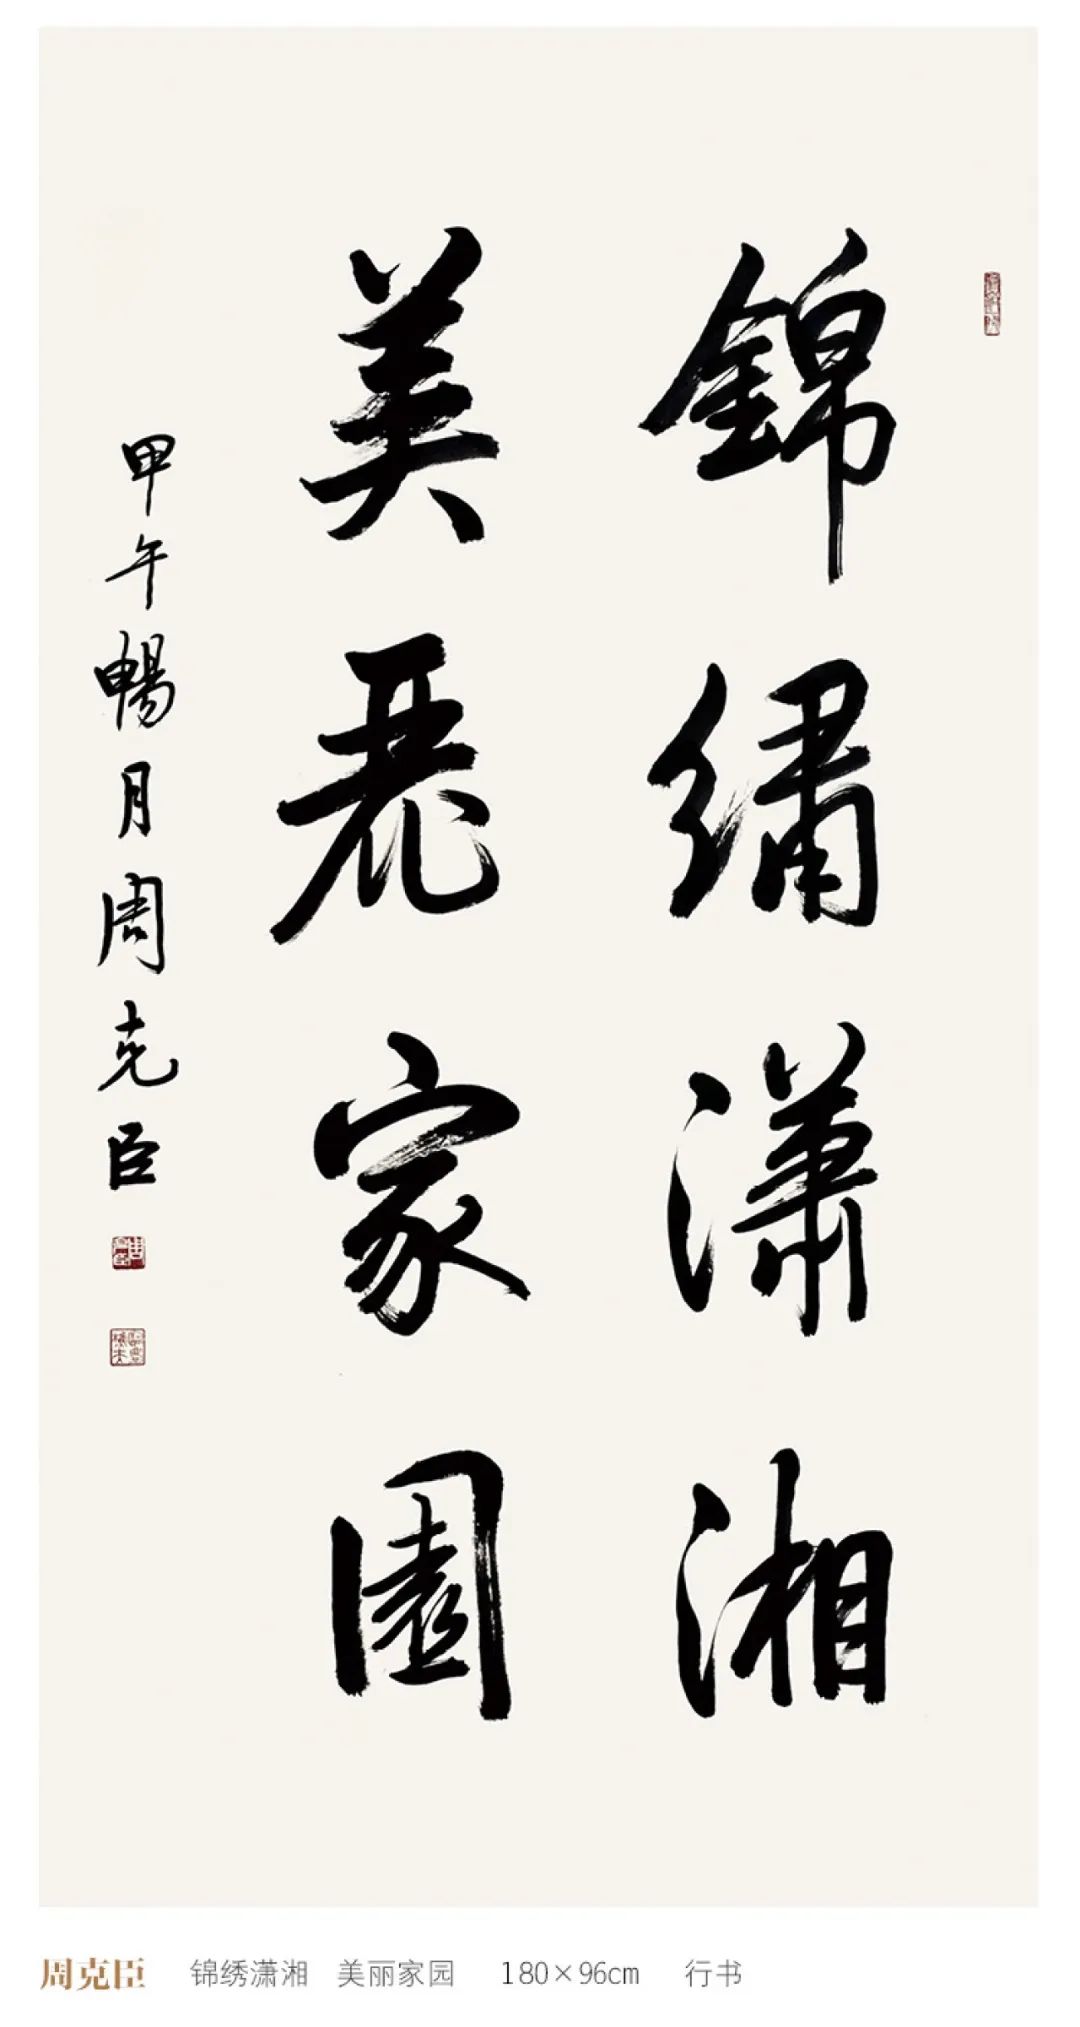 錦繡瀟湘
美麗家園
甲午暢月周克臣
周克臣 锦绣潇湘 美丽家园 180×96cm 行书